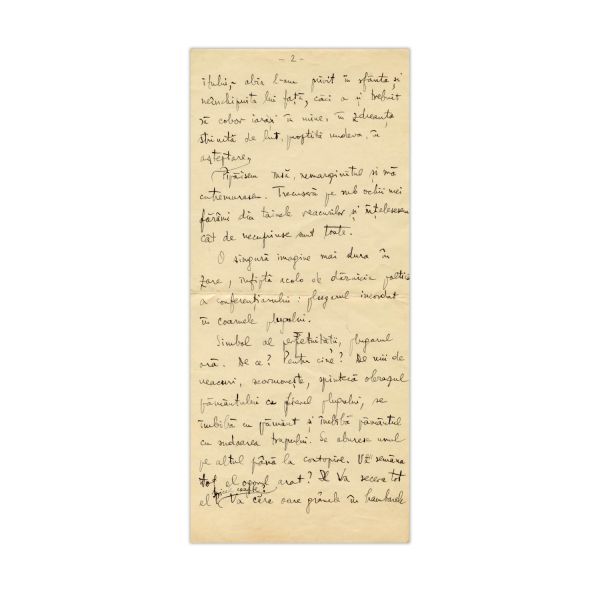 - 2 -
itului,- abia l-am privit în sfânta și
neînchipuita lui față, căci a și trebuit
să cobor iarăși în mine, în zdreanța
de lut, undeva, în
așteptare,
însă, nemarginitul și mă
cutremurasem. Trecuseră pe sub ochii mei
fărâmi din tainele veacurilor și înțelesesem
cât de necuprinse sunt toate.
O singură imagine mai dura în
zare, înfiptă acolo de dărnicia
a conferențiarului: plugarul încordat
în coarnele plugului.
Simbol al perpetuității, plugarul
ară. De ce? Pentru cine? De mii de
veacuri, scormonește, spintecă obrazul
pământului cu fierul plugului, se
îmbibă cu pământ și îmbibă pământul
cu sudoarea trupului. Se aburesc unul
pe altul până la contopire. Va semăna
tot el ogorul arat? Va secera tot
el?
Va căra oare grânele în hambarele